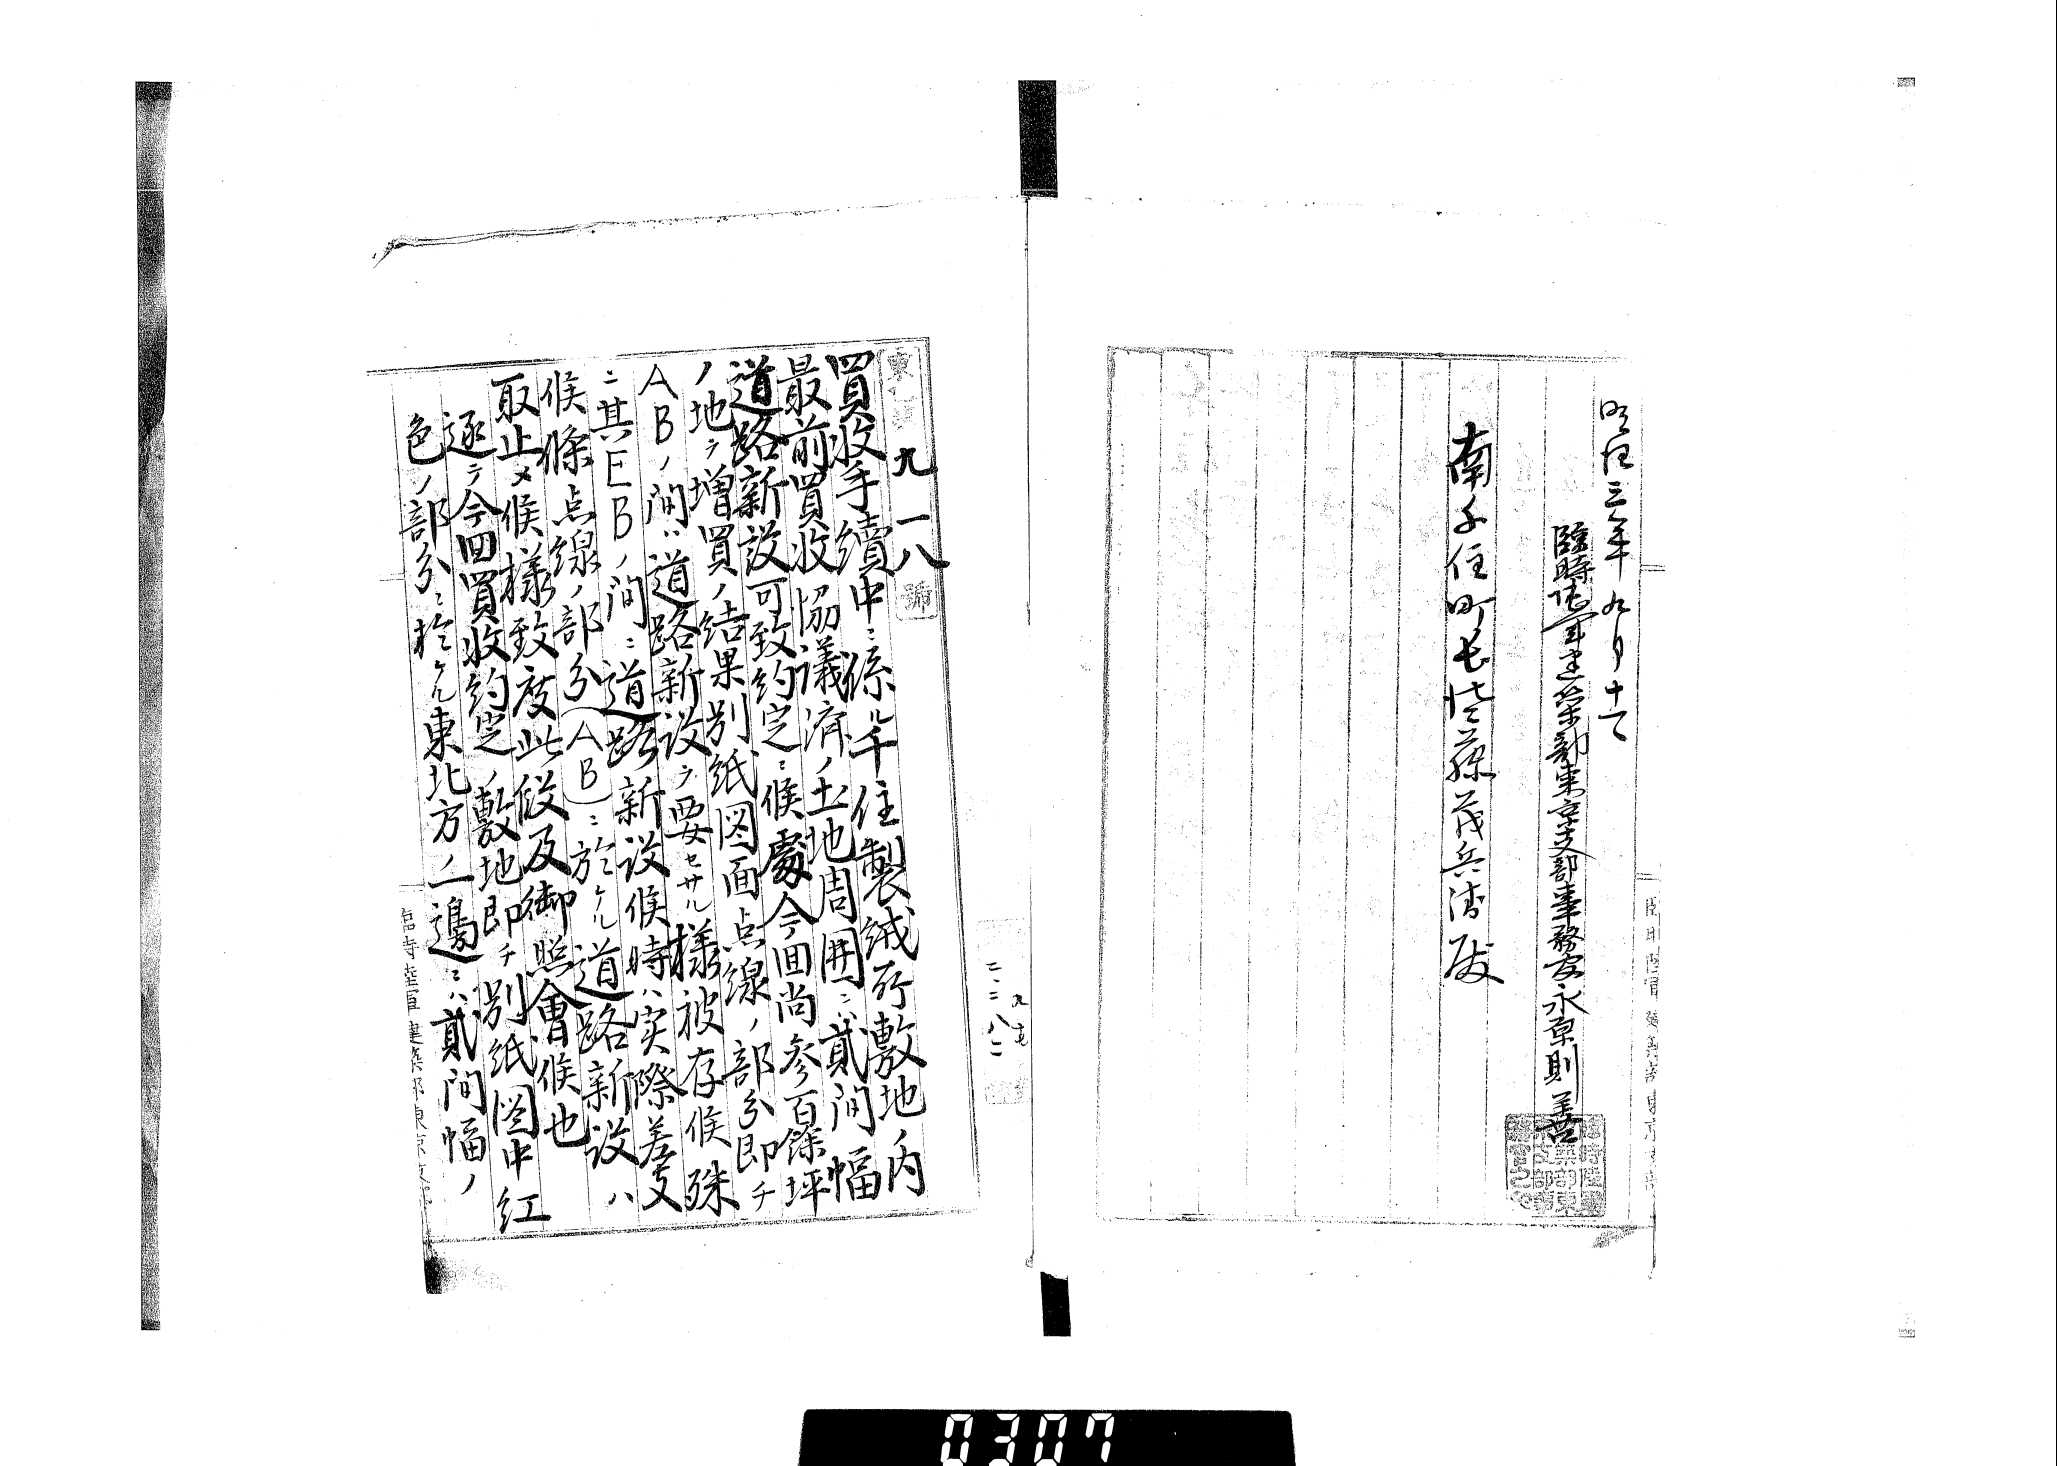 明治三年九月十七日
臨時陸軍建築部東京支部事務官永原則善
南千住町長 藤茂兵衛殿
臨時陸軍建築部東京支部
九一八號
買收手續中ニ係ル千住製絨所敷地ノ内
最前買收協議濟ノ土地周囲ニハ貳間幅
道路新設可致約定ニ候處今回尚參百餘坪
ノ地ヲ増買ノ結果別紙図面点線ノ部分即チ
ABノ間ハ道路新設ヲ要セサル様被存候殊
ニ其EBノ間ニ道路新設候時ハ実際差支
候條点線ノ部分(AB)ニ於ケル道路新設ハ
取止メ候様致度此段及御照會候也
逐テ今回買收約定ノ敷地即チ別紙図中紅
色ノ部分ニ於ケル東北方ノ一邊ニハ貳間幅ノ
臨時陸軍建築部東京支部
0307